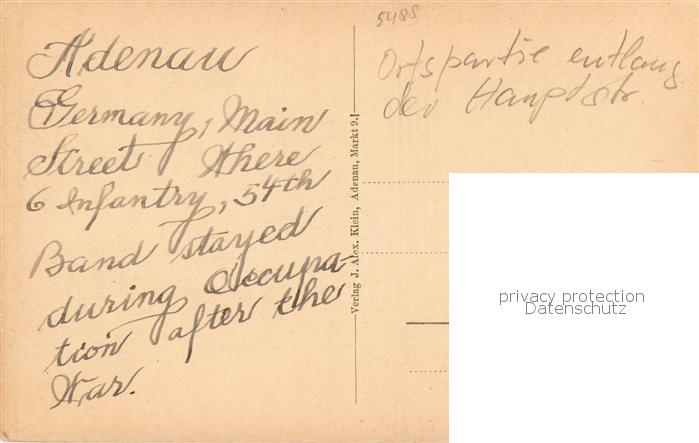 Adenau
Germany, Main
Street where
6 Infantry, 54th
Band stayed
during Occupa-
tion after the
War.
Verlag J. Alex. Klein, Adenau, Markt 9.
5488
Ortspartie entlang
der Hauptstr
privacy protection
Datenschutz